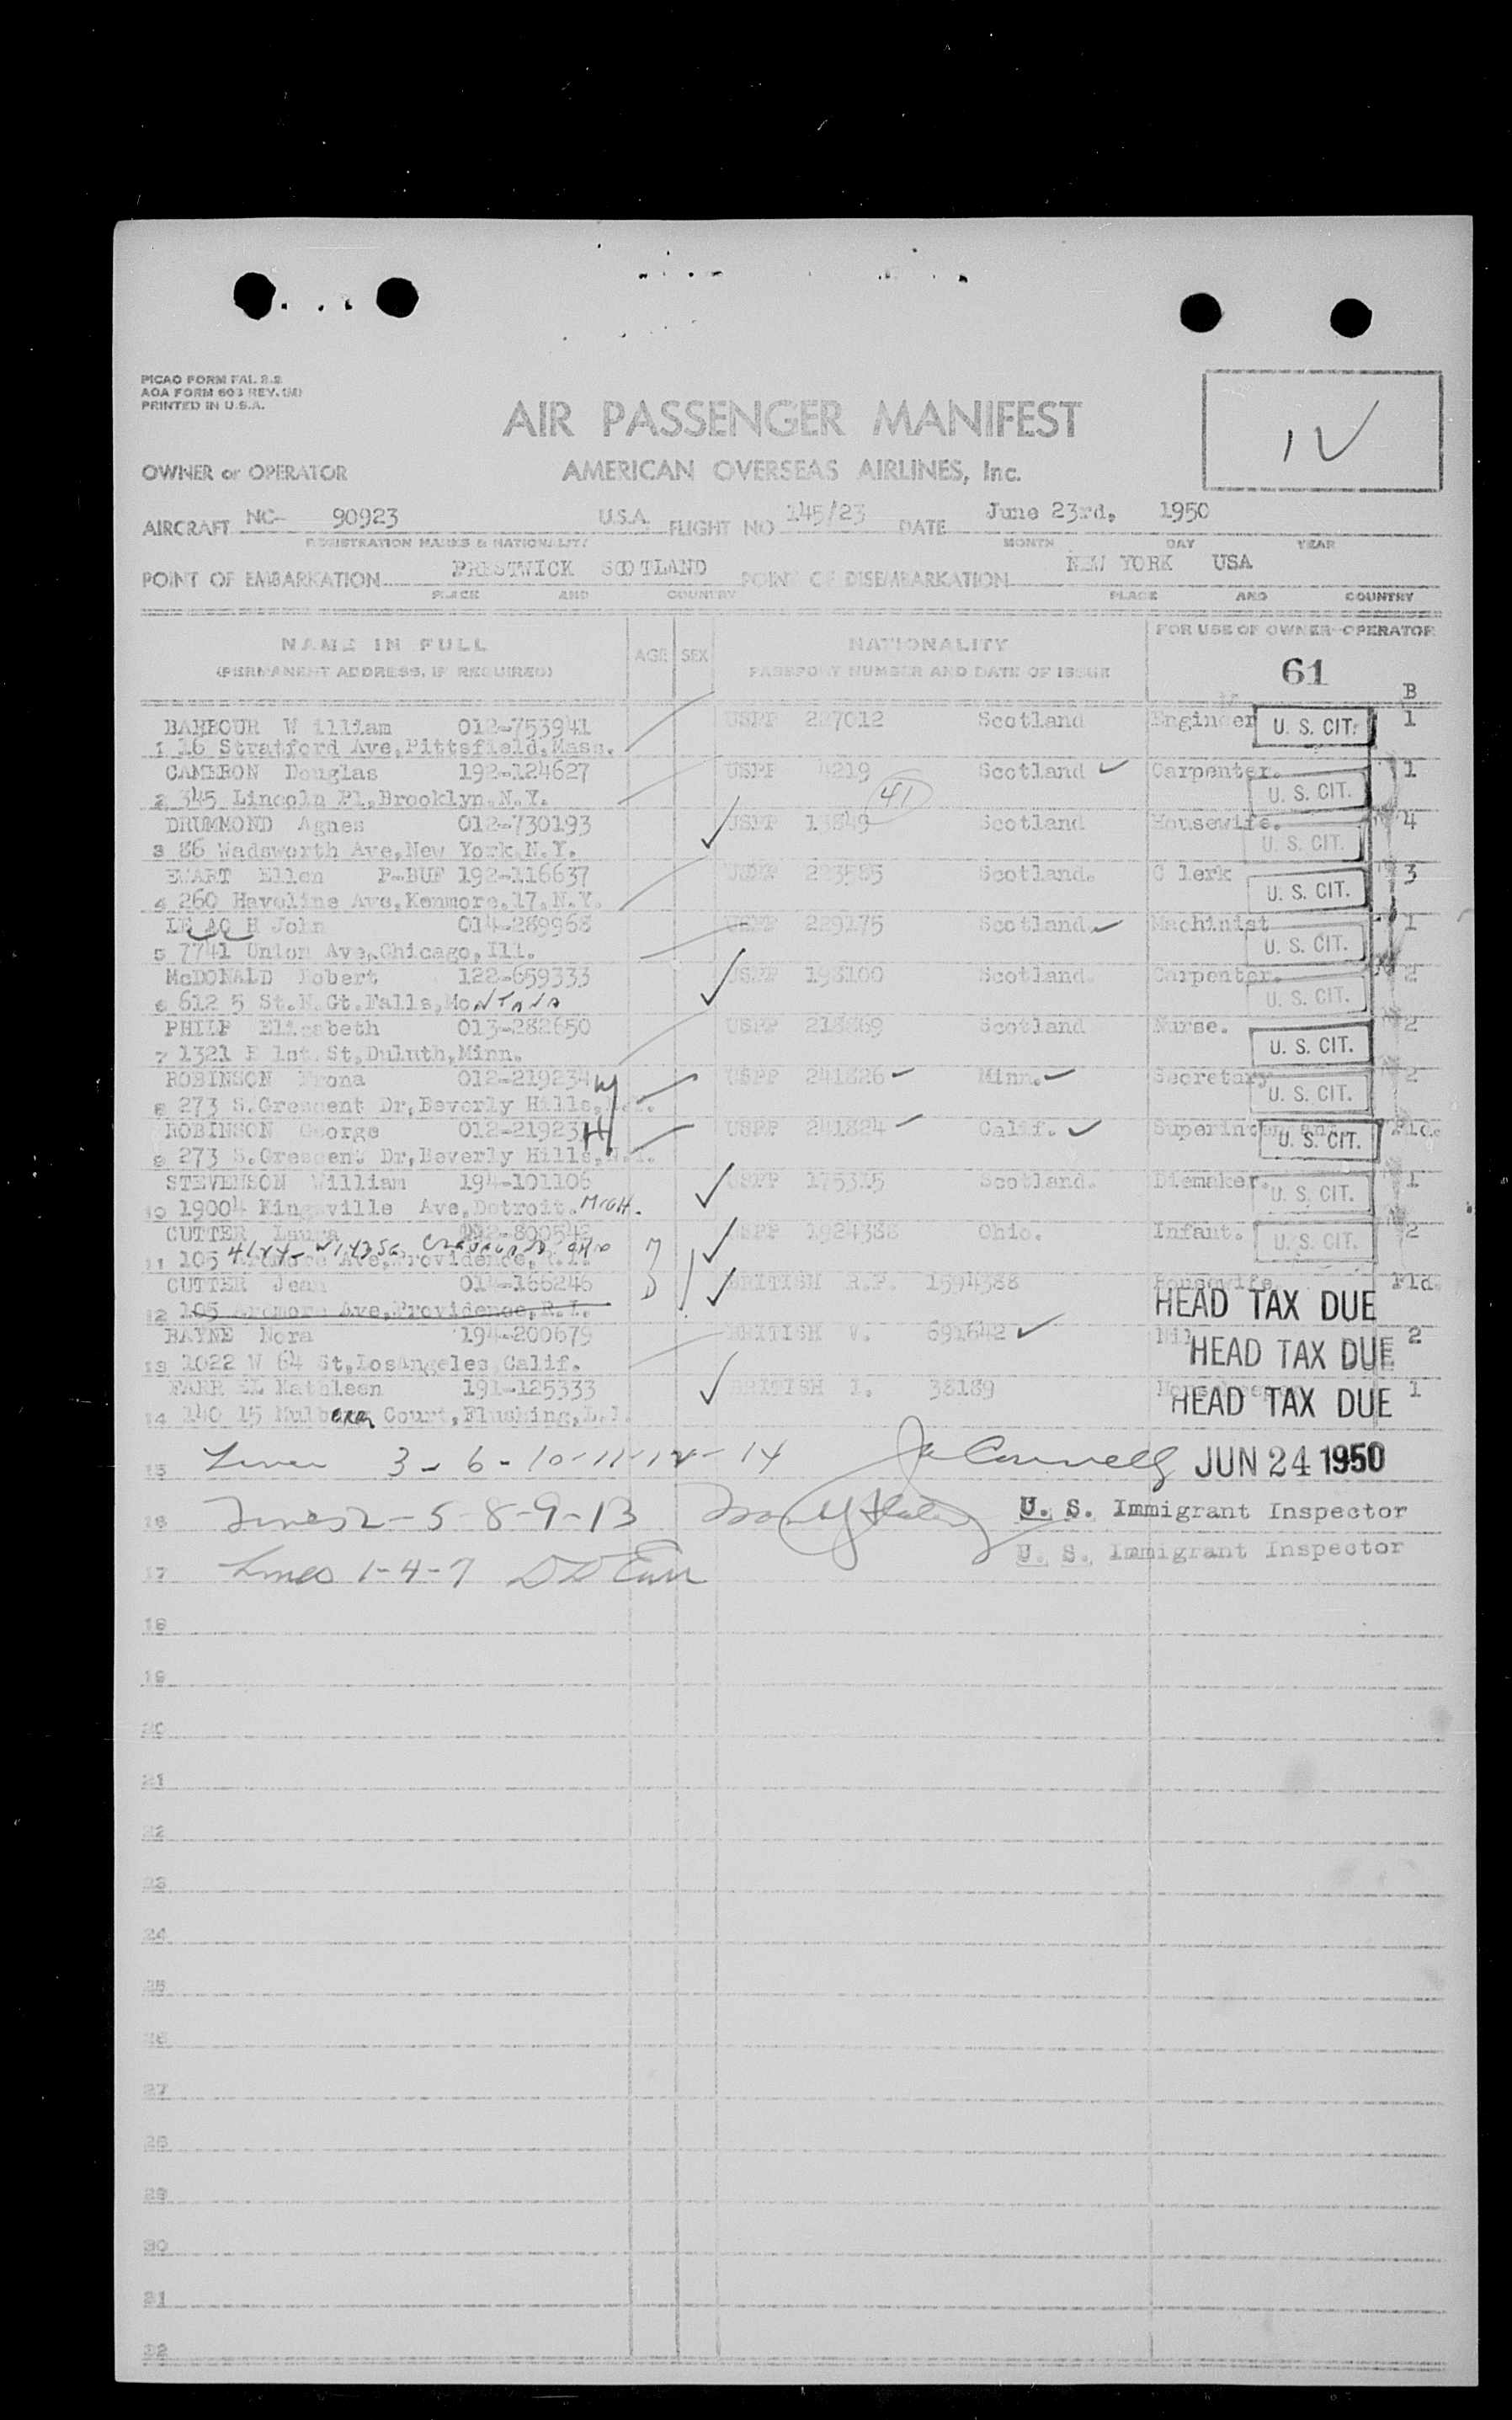 PICAO FORM FAL 2.2
AOA FORM 603 REV. (M)
PRINTED IN U.S.A.
AIR PASSENGER MANIFEST
IV
OWNER or OPERATOR AMERICAN OVERSEAS AIRLINES, Inc.
AIRCRAFT NC- 90923 U.S.A. FLIGHT NO 145/23 DATE June 23rd, 1950
REGISTRATION MARKS & NATIONALITY MONTH DAY YEAR
POINT OF EMBARKATION PRESTWICK SCOTLAND POINT OF DISEMBARKATION NEW YORK USA
PLACE AND COUNTRY PLACE AND COUNTRY
NAME IN FULL AGE SEX NATIONALITY FOR USE OF OWNER-OPERATOR
(PERMANENT ADDRESS, IF REQUIRED) PASSPORT NUMBER AND DATE OF ISSUE 61
B
BARBOUR W illiam 012-753941 USPP 227012 Scotland Engineer U. S. CIT. 1
1 16 Stratford Ave,Pittsfield,Mass.
CAMERON Douglas 192-124627 USPP 4219 Scotland Carpenter. U. S. CIT. 1
2 345 Lincoln Pl,Brooklyn,N.Y. 41
DRUMMOND Agnes 012-730193 USPP 13849 Scotland Housewife. U. S. CIT. 4
3 86 Wadsworth Ave,New York,N.Y.
EWART Ellen P-BUF 192-116637 USPP 223585 Scotland. C lerk U. S. CIT. 3
4 260 Haveline Ave,Kenmore,17,N.Y.
H John 014-289968 USPP 229175 Scotland. Machinist U. S. CIT. 1
5 7741 Union Ave,Chicago,Ill.
McDONALD Robert 122-659333 USPP 198100 Scotland. Carpenter. U. S. CIT. 2
6 612 5 St.N.Gt.Falls,MoNTANA
PHILP Elizabeth 013-282650 USPP 218869 Scotland Nurse. U. S. CIT. 2
7 1321 E 1st St,Duluth,Minn.
ROBINSON 012-219234 USPP 241826 Minn. Secretary U. S. CIT. 2
8 273 S.Crescent Dr,Beverly Hills,
ROBINSON George 012-21923 USPP 241824 Calif. U. S. CIT. Pld.
9 273 S.Crescent Dr,Beverly Hills,
STEVENSON William 194-101106 USPP 175315 Scotland. Diemaker. U. S. CIT. 1
10 19004 Kingsville Ave,Detroit.MICH.
CUTTER Laura USPP 1924388 Ohio. Infant. U. S. CIT. 2
11 105 Ardmore Ave,Providence,R.I.
CUTTER Jean 014-166246 BRITISH R.P. 1594388 Housewife. Pld.
12 105 Ardmore Ave,Providence,R.I. HEAD TAX DUE
BAYNE Nora 194-200679 BRITISH V. 691642 Nil 2
13 1022 W 64 St,LosAngeles,Calif. HEAD TAX DUE
FARR EL Kathleen 191-125333 BRITISH I. 38189 1
14 140 15 Court,Flushing,L.I. HEAD TAX DUE
15 Lines 3-6-10-11-12-14 JUN 24 1950
16 Lines 2-5-8-9-13 U. S. Immigrant Inspector
U. S. Immigrant Inspector
17 Lines 1-4-7
18
19
20
21
22
23
24
25
26
27
28
29
30
31
32